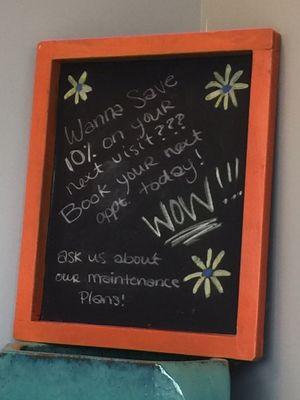 Wanna Save
10% on your
next visit???
Book your next
appt. today!
WOW!!!
ask us about
our maintenance
Plans!